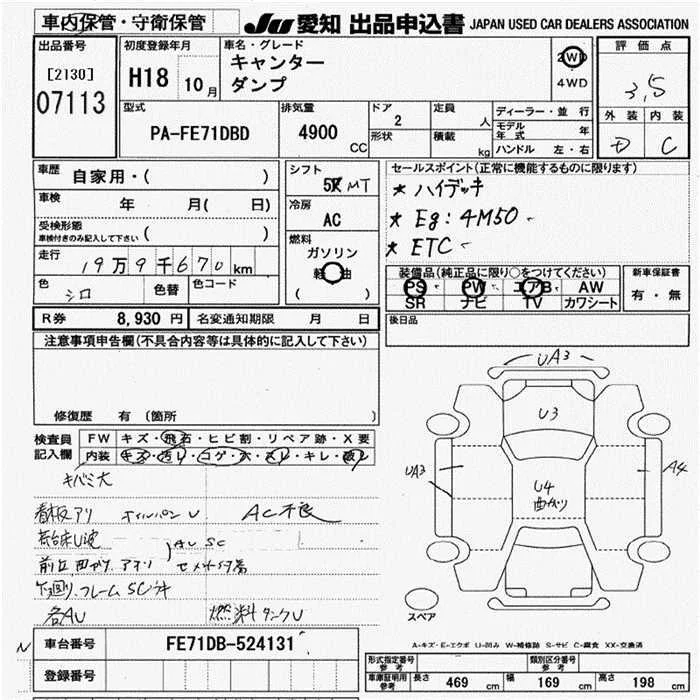 車内保管・守衛保管
JU 愛知 出品申込書 JAPAN USED CAR DEALERS ASSOCIATION
出品番号
[2130]
07113
初度登録年月
H18 10月
車名・グレード
キャンター
ダンプ
2WD
4WD
評価点
3.5
外装 内装
D C
型式
PA-FE71DBD
排気量
4900 CC
ドア
2
形状
定員 人
積載 kg
ディーラー・並行
モデル年式 年
ハンドル 左・右
車歴
自家用・( )
車検
年 月( 日)
受検形態
車検付きのみ記入して下さい ( )
走行
19万9千670 km
色 シロ 色替 色コード
シフト
5X MT
冷房
AC
燃料
ガソリン
軽油
( )
セールスポイント(正常に機能するものに限ります)
★ ハイデッキ
★ Eg: 4M50
★ ETC
装備品(純正品に限り○をつけてください)
PS PW エアB AW
SR ナビ TV カワシート
新車保証書
有・無
R券 8,930 円 名変通知期限 月 日
後日品
注意事項申告欄(不具合内容等は具体的に記入して下さい)
修復歴 有 (箇所 )
検査員記入欄
FW キズ・飛石・ヒビ割・リペア跡・X要
内装 キズ・汚レ・コゲ・穴・スレ・キレ・破レ
キバミ大
看板アリ オイルパンU AC不良
荷台床U波 AU SC
前立曲がり、アオリ セメント付着
下廻リ、フレームSCサ
各AU 燃料タンクU
UA3
U3
UA3
U4
A4
スペア
A-キズ・E-エクボ U-凹み W-補修跡 S-サビ C-腐食 XX-交換済
車台番号 FE71DB-524131
登録番号
形式指定番号 参考
類別区分番号 参考
車庫証明用 参考 長さ 469 cm 幅 169 cm 高さ 198 cm